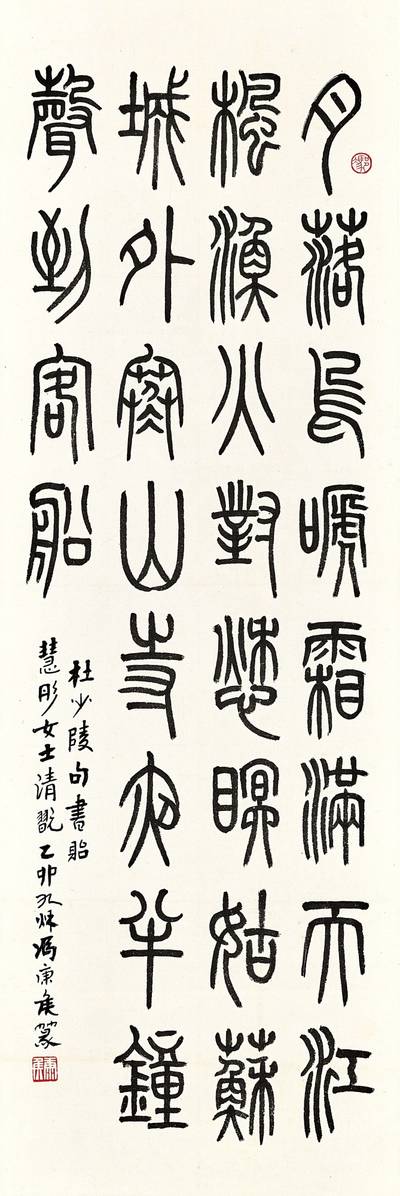 月落烏嗁霜滿天江
楓漁火對愁瞑姑蘇
城外寒山寺夜半鐘
聲到客船
杜少陵句書貽
慧彤女士清翫乙卯九秋馮康侯篆